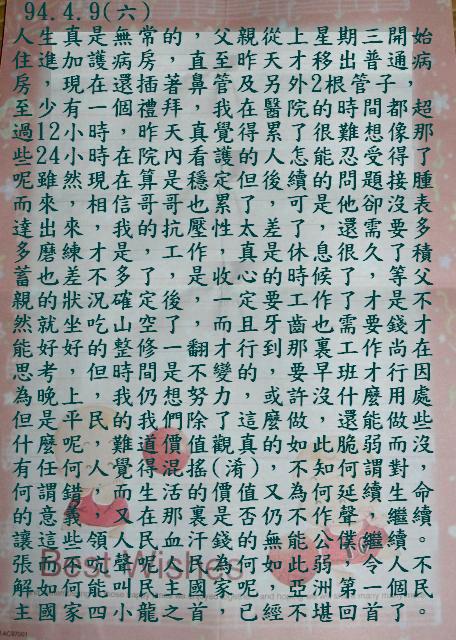 94.4.9(六)
人生真是無常的，父親從上星期三開始
住進加護病房，直至昨天才移出普通病
房，現在還插著鼻管及另外2根管子，
至少有一個禮拜，我在醫院的時間都超
過12小時，昨天真覺得累了很難想像那
些24小時在院內看護的人怎能忍受得了
呢雖然現在算是穩但了後續的問題接腫
而來，相信哥哥也定累了，可是他卻沒表
達出來，我的抗壓性太差了，還需要多
多磨練才是，工作，真是休息很久了積
蓄也差不多了，是收心的時候了，等父
親的狀況確定後，一定要工作，才是不
然就坐吃山空了，而且牙齒也需要錢才
能好好的整修一翻才行，那裏工作尚在
思考，但時間是不變的到要早班才行因
為晚上，我仍想努力，或許沒什麼用處
但是平民的我們除了這麼做，還能做些
什麼呢，難道價值觀真的如此脆弱而沒
有任何人覺得混搖(淆)，不知何謂對，
何謂錯，而生活的價值又為何延續生命
的意義又在那裏是否仍不能作聲，繼續
讓這些領人民血汗錢的無能公僕繼續。
張而不吠聲呢人民為何如此弱，令人不
解如何能叫民主國家呢，亞洲第一個民
主國家四小龍之首，已經不堪回首了。
Best Wishes